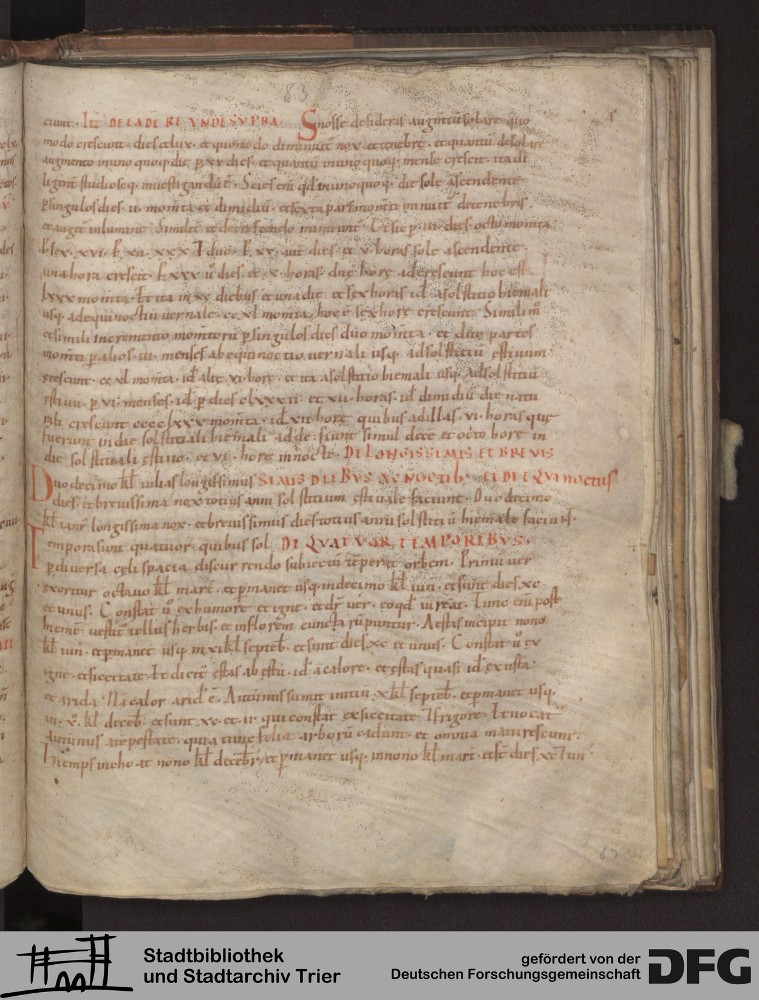 83
ciunt. Ite DE EADE RE UNDE SUPRA. Si nosse desideras augmtū solare quo
modo crescunt dies et lux. et quomodo diminuit nox et tenebrę. et quantū de solare
augmento in uno quoq; die p xv dies. et quantū in uno quoq; mense crescit. ita di
ligent studioseq; inuestigandū ē. Scies eni qd in uno quoq; die sole ascendente
p singulos dies momta et dimidiū
et auget in lumine. Similit
k lx. xvi. k xii. xxx dies et v horas sole ascendente.
una hora crescit. k xxx dies. et x. horas. duę horę adcrescunt hoc est
lxxx momta. Et ita in xc diebus et una die et sex horas id a solstitio hiemali
usq; ad equinoctiū uernale. cc xl momta. hoc ē sex horę crescunt. Simili m
et simili incremento momtorū p singulos dies duo momta. et duo partes
momti p alios iii menses ab equinoctio uernali usq; ad solstitiū estiuum
crescunt. cc xl momta. id alię vi horę. et ita a solstitio hiemali usq; ad solstitiū
estiuū p vi menses. id p dies clxxxii et xii horas. id dimidiū die natu
rali crescunt cccclxxx momta. id xii horę quibus ad illas vi horas quę
fuerunt in die solstitiali hiemali adde. fiunt simul decē et octo horę in
die solstitiali estiuo. et vi horę in nocte. DE LONGISSIMIS ET BREVIS
Duodecimo kl iulias longissimus SIMIS DIEBUS AC NOCTIB; ET DE EQUINOCTIIS
dies. et breuissima nox totius anni solstitium estiuale faciunt. Duodecimo
kl ianr longissima nox. et breuissimus dies totius anni solstitiū hiemale faciunt.
Tempora sunt quatuor. quibus sol DE QUATUOR TEMPORIBUS.
p diuersa cęli spacia discurrendo subiectū temperat orbem. Primū uer
exoritur octauo kl marc. et pmanet usq; in decimo kl iun. et sunt dies. xc
et unus. Constat ū ex humore et igne. et dr uer. eo qd uireat. Tunc eni post
hiemē uestit tellus herbis. et in florem cuncta rūpuntur. Aestas incipit nono
kl iun. et pmanet usq; in xi kl septeb. et sunt dies. xc et unus. Constat ū ex
igne. et siccitate. Et dicta estas ab estu. id a calore. et estas quasi id exusta
et arida. Nā calor arid ē. Autūnus sumit initiū x kl septeb. et pmanet usq;
in x kl deceb. et sunt. xc. et qui constat ex siccitate frigore. Et uocat
autūnus a tēpestate. quia tunc folia arborū cadunt. et omnia maturescunt.
Hiemps inchoat nono kl decebr. et pmanet usq; in nono kl mart. et st dies. xc un
83
Stadtbibliothek
und Stadtarchiv Trier
gefördert von der
Deutschen Forschungsgemeinschaft
DFG